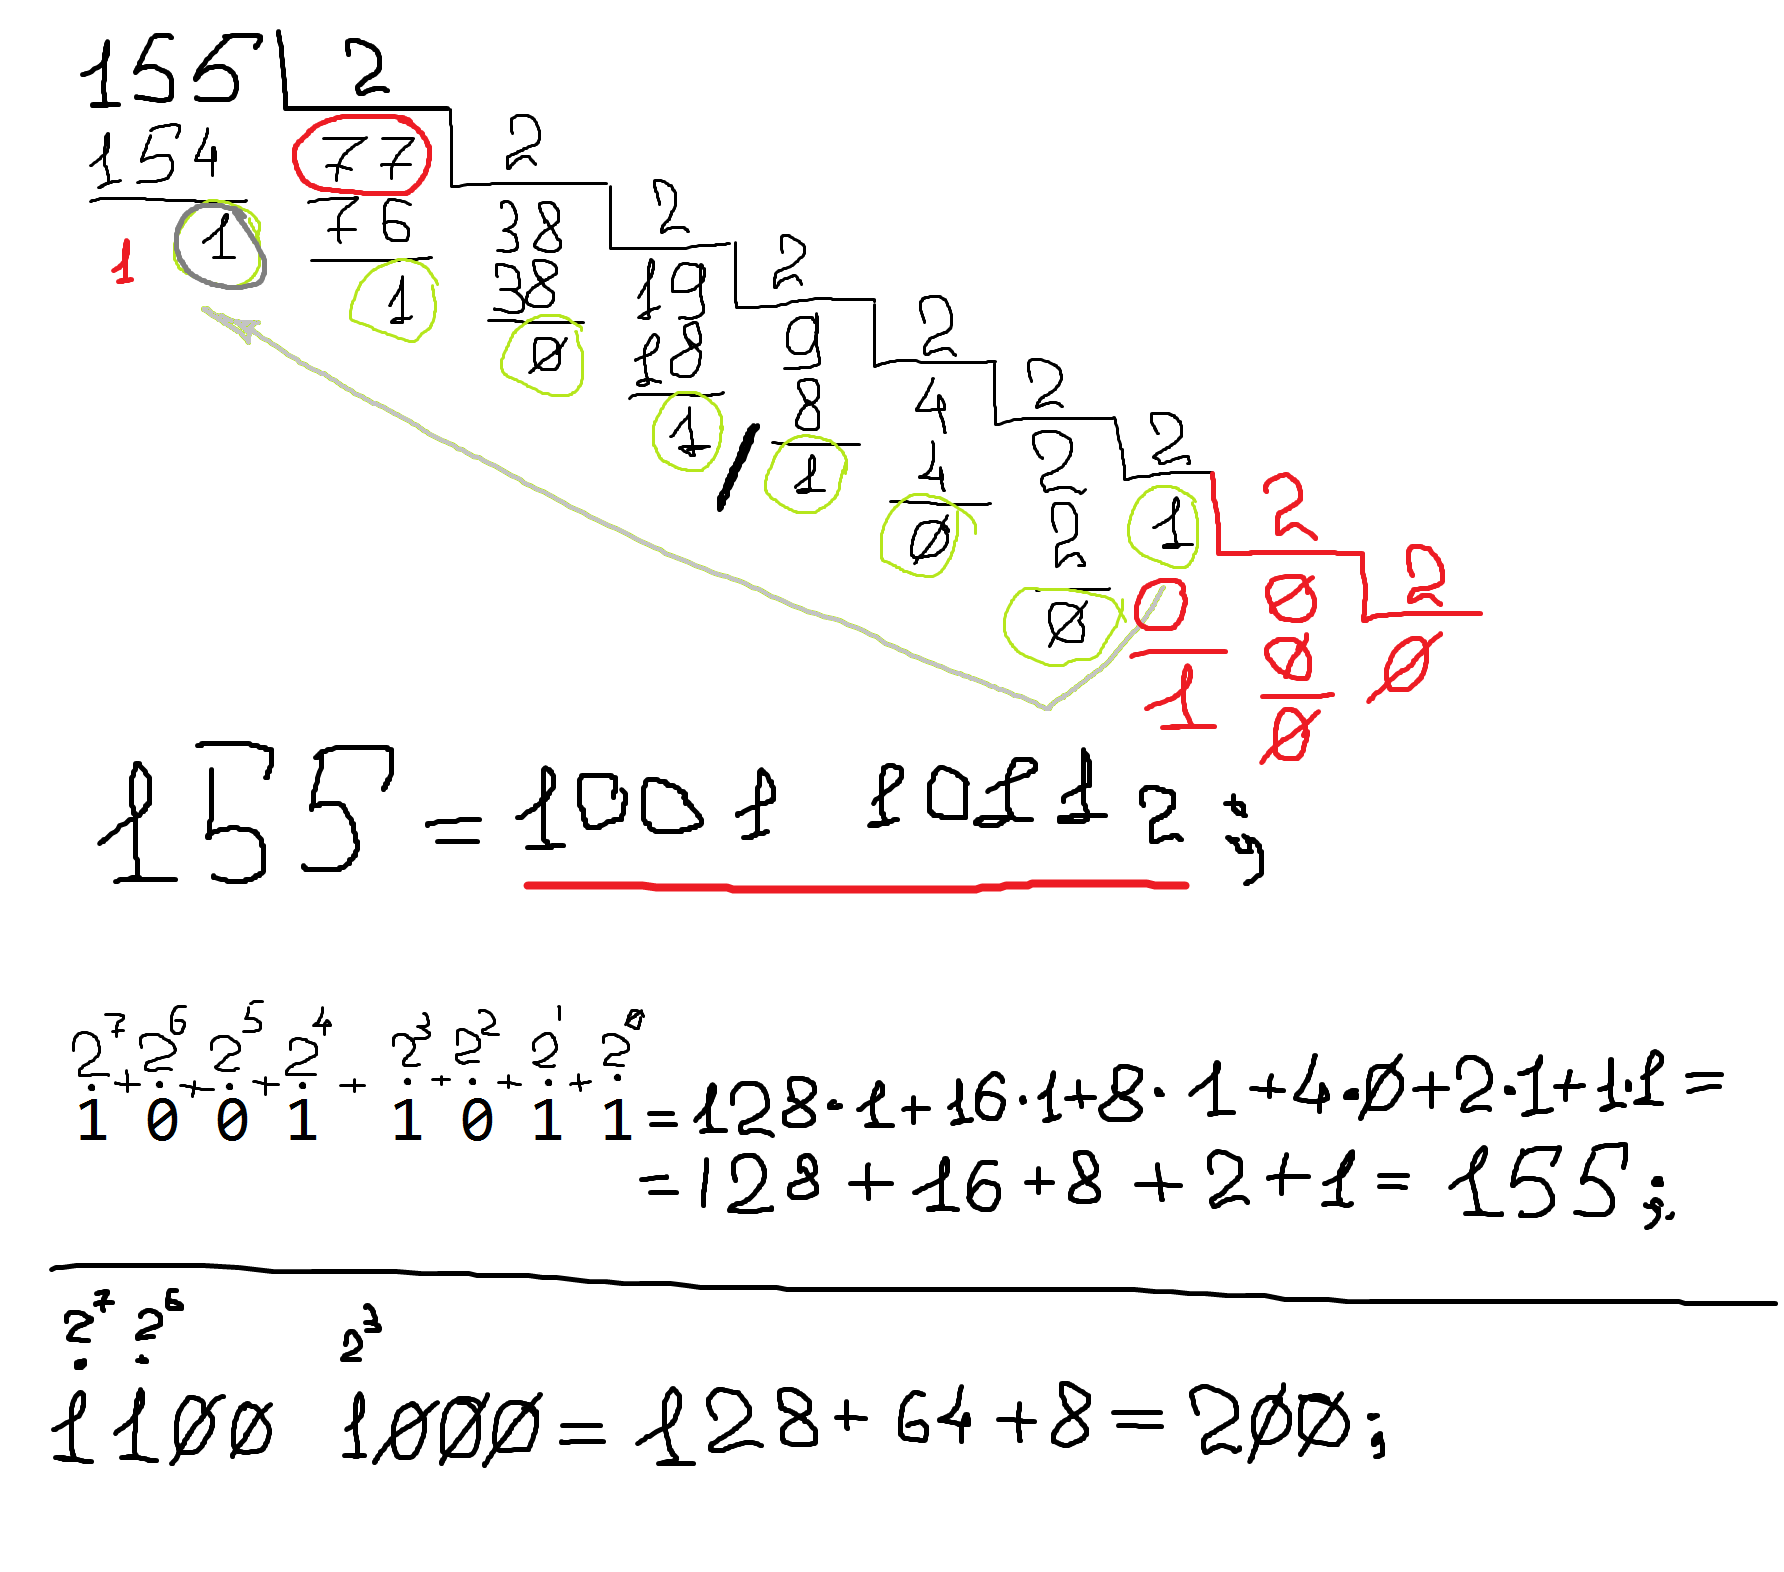 155 2
154 77 2
1 1 76 38 2
1 38 19 2
0 18 9 2
1 / 8 4 2
1 4 2 2
0 2 1 2
0 0 0 2
1 0 0
0
155 = 1001 1011 2 ;
2^7 2^6 2^5 2^4 2^3 2^2 2^1 2^0
· + · + · + · + · + · + · + ·
1 0 0 1 1 0 1 1 = 128·1 + 16·1 + 8·1 + 4·0 + 2·1 + 1·1 =
= 128 + 16 + 8 + 2 + 1 = 155 ;
2^7 2^6 2^3
· ·
1100 1000 = 128 + 64 + 8 = 200 ;